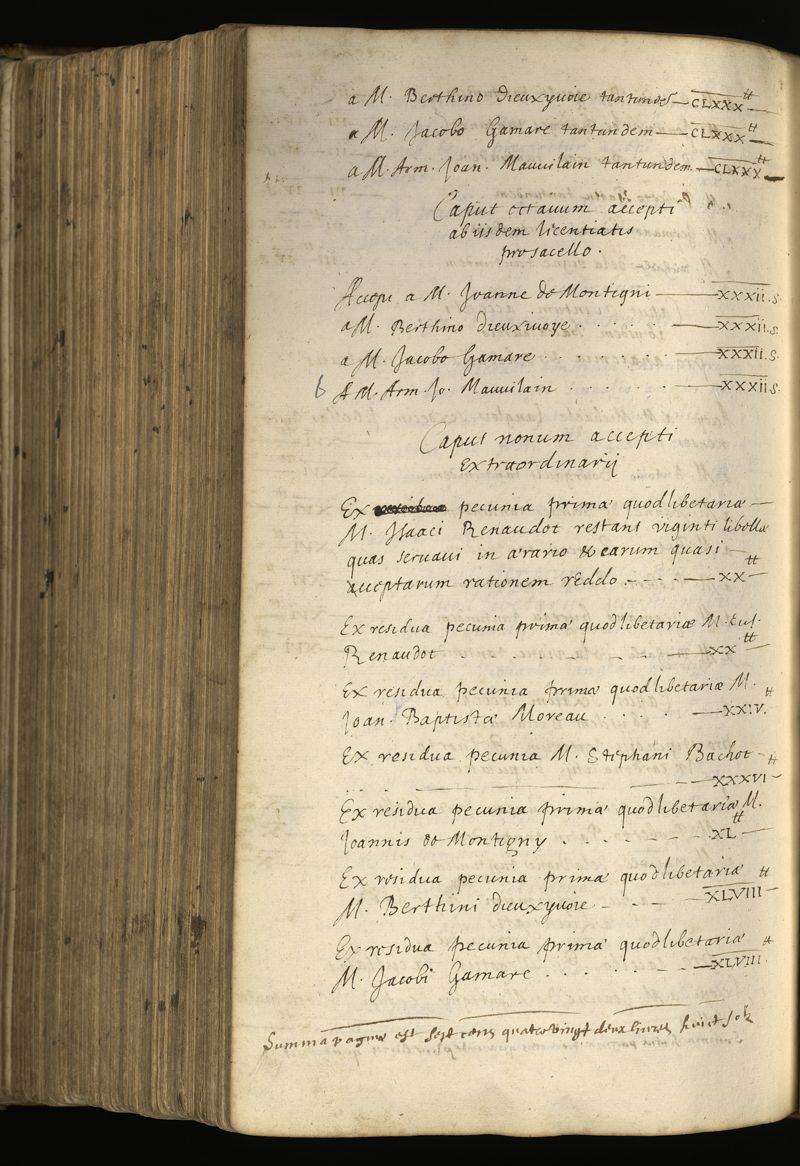 a M. Berthino dieuxyvoie tantundē — CLXXX ₶
a M. Jacobo Gamare tantundem — CLXXX ₶
a M. Arm. Joan. Mauvilain tantundem — CLXXX ₶
Caput octauum accepti
ab iisdem licentiatis
pro sacello.
Accepi a M. Joanne de Montigni — XXXii. s.
a M. Berthino dieuxivoye . . . . . — XXXii. s.
a M. Jacobo Gamare . . . . . . — XXXII. s.
A M. Arm. Jo. Mauvilain . . . . . — XXXII s.
Caput nonum accepti
extraordinarij
Ex pecunia primæ quodlibetariæ —
M. Isaaci Renaudot restant viginti libellæ
quas servavi in ærario & earum quasi —
acceptarum rationem reddo . - - - — XX ₶
Ex residua pecunia primæ quodlibetariæ M. Eus.
Renaudot . . . . . . . — XX ₶
Ex residua pecunia primæ quodlibetariæ M.
Joan. Baptistæ Moreau . . . . — XXIV. ₶
Ex residua pecunia M. Stephani Bachot — ₶
. . . — XXXVI
Ex residua pecunia primæ quodlibetariæ M.
Joannis de Montigny . . . . - - - XL ₶
Ex residua pecunia primæ quodlibetariæ ₶
M. Berthini dieuxyvoie - - - - — XLVIII
Ex residua pecunia primæ quodlibetariæ ₶
M. Jacobi Gamare . . . . - - — XLVIII.
Summa paginæ est sept cens quatre vingt deux livres huict sols